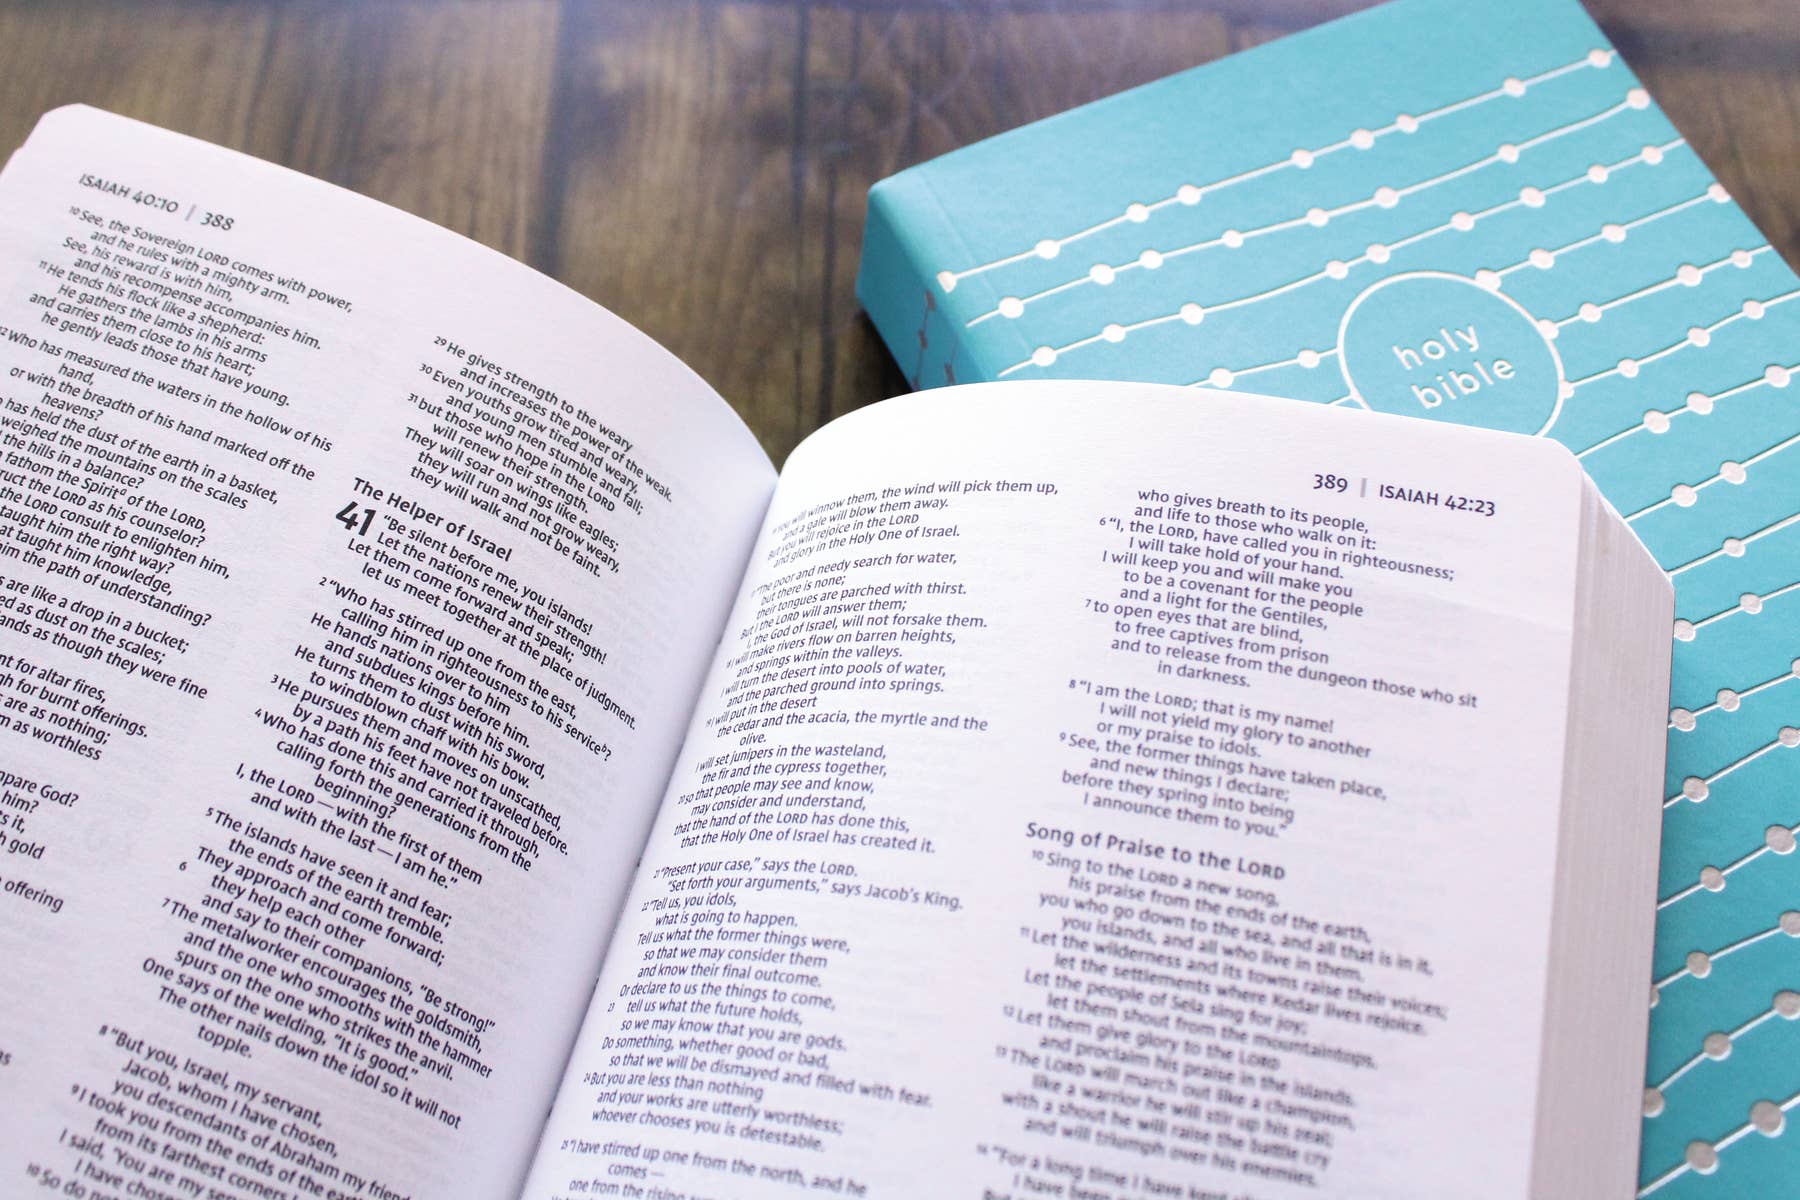 ISAIAH 40:10 | 388
10 See, the Sovereign LORD comes with power,
and he rules with a mighty arm.
See, his reward is with him,
and his recompense accompanies him.
11 He tends his flock like a shepherd:
He gathers the lambs in his arms
and carries them close to his heart;
he gently leads those that have young.
12 Who has measured the waters in the hollow of his
hand,
or with the breadth of his hand marked off the
heavens?
has held the dust of the earth in a basket,
weighed the mountains on the scales
the hills in a balance?
fathom the Spirit d of the LORD,
the LORD as his counselor?
the LORD consult to enlighten him,
taught him the right way?
taught him knowledge,
him the path of understanding?
are like a drop in a bucket;
as dust on the scales;
as though they were fine
for altar fires,
for burnt offerings.
are as nothing;
as worthless
God?
him?
it,
gold
offering
29 He gives strength to the weary
and increases the power of the weak.
30 Even youths grow tired and weary,
and young men stumble and fall;
31 but those who hope in the LORD
will renew their strength.
They will soar on wings like eagles;
they will run and not grow weary,
they will walk and not be faint.
The Helper of Israel
41 "Be silent before me, you islands!
Let the nations renew their strength!
Let them come forward and speak;
let us meet together at the place of judgment.
2 "Who has stirred up one from the east,
calling him in righteousness to his service b?
He hands nations over to him
and subdues kings before him.
He turns them to dust with his sword,
to windblown chaff with his bow.
3 He pursues them and moves on unscathed,
by a path his feet have not traveled before.
4 Who has done this and carried it through,
calling forth the generations from the
beginning?
I, the LORD — with the first of them
and with the last — I am he."
5 The islands have seen it and fear;
the ends of the earth tremble.
They approach and come forward;
6 they help each other
and say to their companions, "Be strong!"
7 The metalworker encourages the goldsmith,
and the one who smooths with the hammer
spurs on the one who strikes the anvil.
One says of the welding, "It is good."
The other nails down the idol so it will not
topple.
8 "But you, Israel, my servant,
Jacob, whom I have chosen,
you descendants of Abraham my friend
9 I took you from the ends of the earth
from its farthest corners
I said, 'You are my
I have chosen
10 So do
389 | ISAIAH 42:23
You will winnow them, the wind will pick them up,
and a gale will blow them away.
But you will rejoice in the LORD
and glory in the Holy One of Israel.
17 "The poor and needy search for water,
but there is none;
their tongues are parched with thirst.
But I the LORD will answer them;
I, the God of Israel, will not forsake them.
18 I will make rivers flow on barren heights,
and springs within the valleys.
I will turn the desert into pools of water,
and the parched ground into springs.
19 I will put in the desert
the cedar and the acacia, the myrtle and the
olive.
I will set junipers in the wasteland,
the fir and the cypress together,
20 so that people may see and know,
may consider and understand,
that the hand of the LORD has done this,
that the Holy One of Israel has created it.
21 "Present your case," says the LORD.
"Set forth your arguments," says Jacob's King.
22 "Tell us, you idols,
what is going to happen.
Tell us what the former things were,
so that we may consider them
and know their final outcome.
Or declare to us the things to come,
23 tell us what the future holds,
so we may know that you are gods.
Do something, whether good or bad,
so that we will be dismayed and filled with fear.
24 But you are less than nothing
and your works are utterly worthless;
whoever chooses you is detestable.
25 "I have stirred up one from the north, and he
comes —
one from the rising
who gives breath to its people,
and life to those who walk on it:
6 "I, the LORD, have called you in righteousness;
I will take hold of your hand.
I will keep you and will make you
to be a covenant for the people
and a light for the Gentiles,
7 to open eyes that are blind,
to free captives from prison
and to release from the dungeon those who sit
in darkness.
8 "I am the LORD; that is my name!
I will not yield my glory to another
or my praise to idols.
9 See, the former things have taken place,
and new things I declare;
before they spring into being
I announce them to you."
Song of Praise to the LORD
10 Sing to the LORD a new song,
his praise from the ends of the earth,
you who go down to the sea, and all that is in it,
you islands, and all who live in them.
11 Let the wilderness and its towns raise their voices;
let the settlements where Kedar lives rejoice.
Let the people of Sela sing for joy;
let them shout from the mountaintops.
12 Let them give glory to the LORD
and proclaim his praise in the islands.
13 The LORD will march out like a champion,
like a warrior he will stir up his zeal;
with a shout he will raise the battle cry
and will triumph over his enemies.
14 "For a long time I have kept
I have been
holy
bible